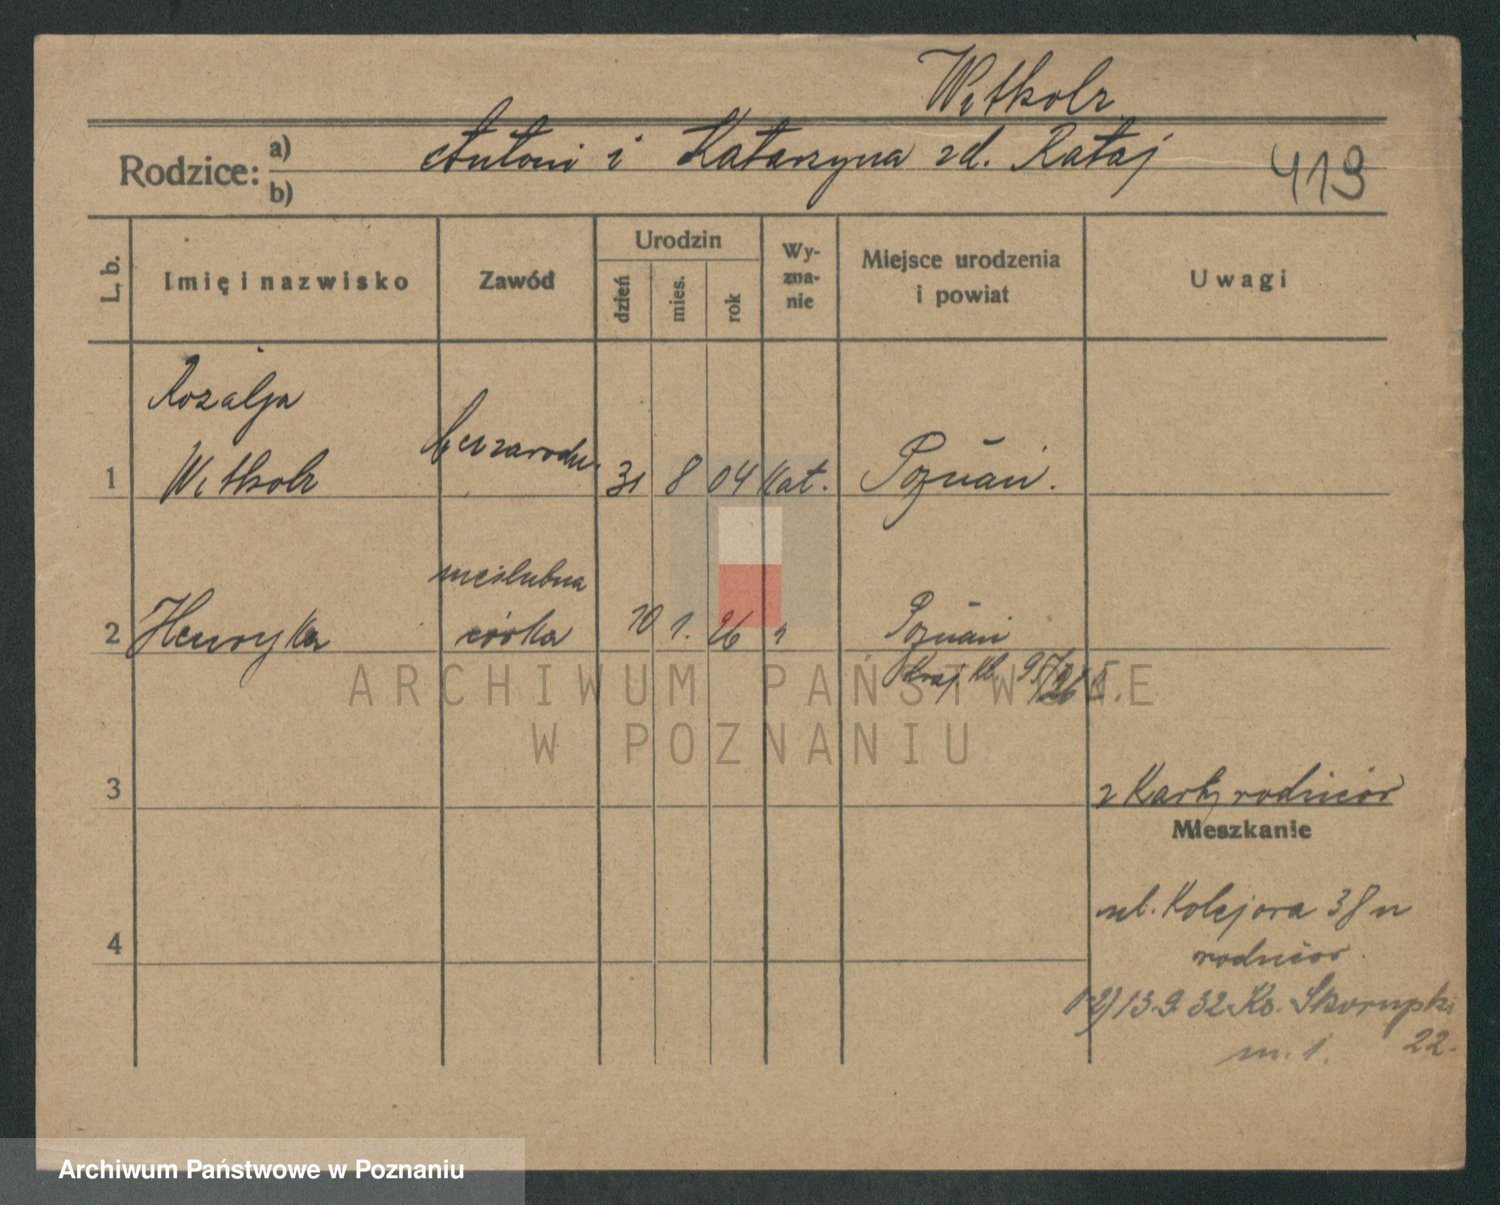 Witkolz
Rodzice: a) Antoni i Katarzyna zd. Rataj 419
b)
L. b. Imię i nazwisko Zawód Urodzin dzień mies. rok Wyzna-nie Miejsce urodzenia i powiat Uwagi
Rozalja
1 Witkolz bez zawodu. 31 8 04 kat. Poznań.
nieślubna
2 Henryka córka 10 1. 26 " Poznań
95/26
ARCHIWUM PAŃSTWOWE
W POZNANIU
3 z Karty rodziców
Mieszkanie
ul. Kolejowa 38 u
4 rodziców.
1-2) 13 9 32 Ks. Skorupki
m. 1. 22.
Archiwum Państwowe w Poznaniu